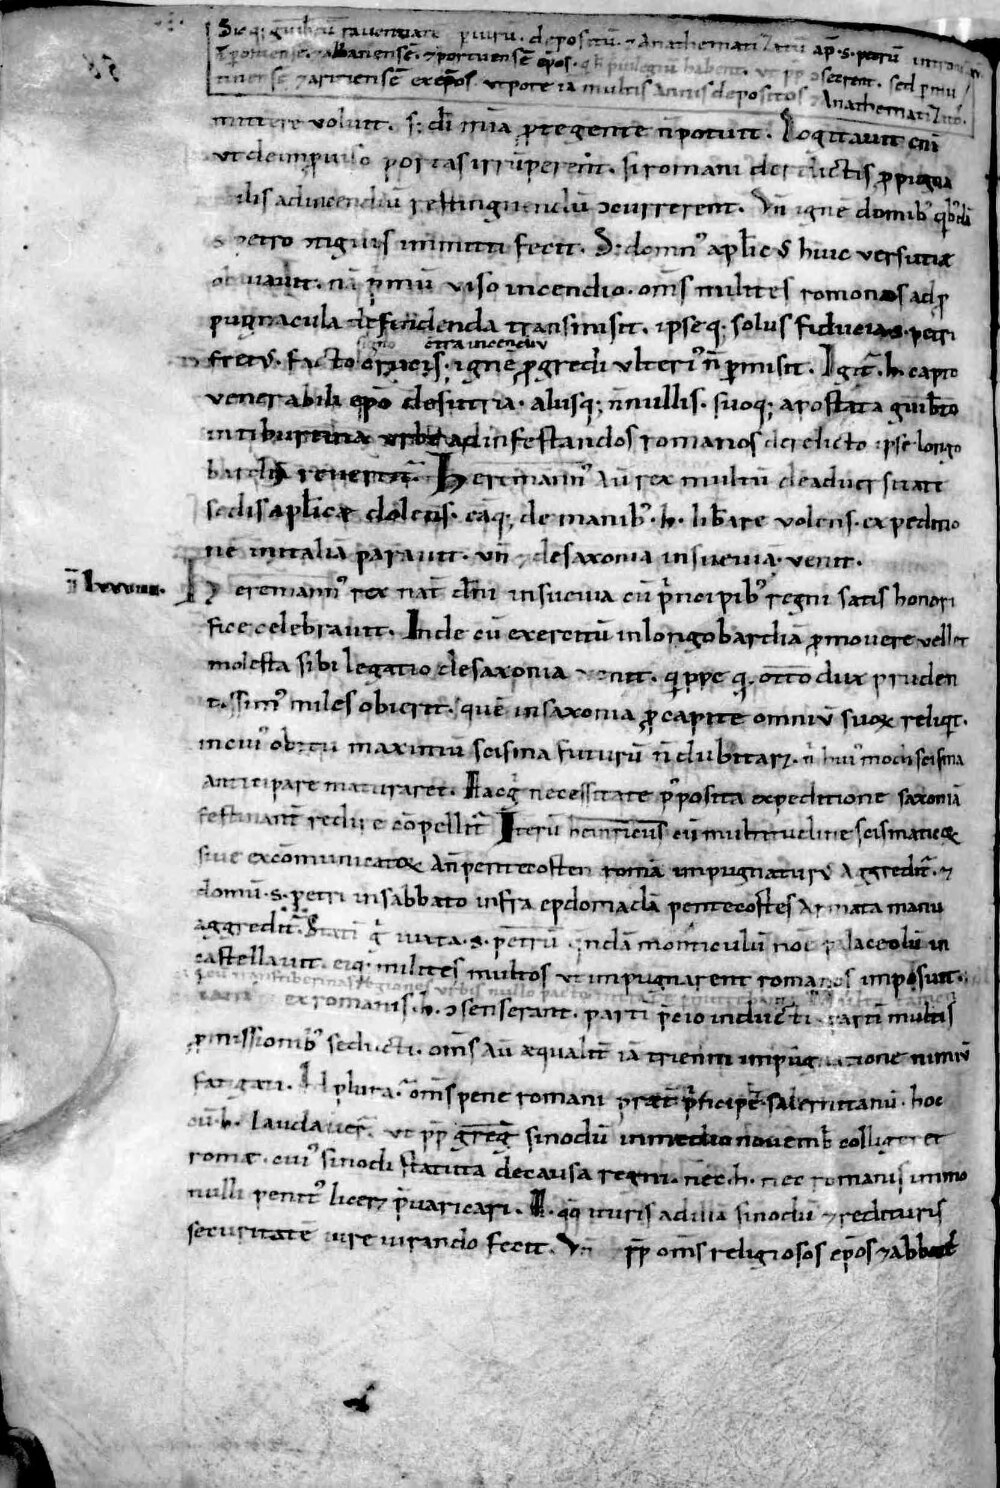 Sicq; guibtū rauennatē piurū. depositū. & Anathematizatū apd. s. petrū
& portuensē epos. q h priuilegiū habent. ut pp ɔsecrent. sed p mu
& exepos. utpote ia multis annis depositos & Anathematizatos.
mittere voluit. s; di mia ptegente n potuit. Cogitauit eni
vt deimprouiso portas irrūperent. si romani derelictis ppugna
ad incendiū restinguendū ɔcurrerent. Vn ignē domib; qb;dā
s. petro ɔtiguis inmitti fecit. S; domn; aplic; huic versutiæ
obuiauit. nā pmū viso incendio. oms milites romanos ad p
pugnacula defendenda transmisit. ipseq; solus fiducia s. petri
signo ɔtra incendiū
fretus. facto crucis. ignē pgredi ulteri; n pmisit. Igit h. capto
venerabili epo de sutria. aliisq; nnullis. suoq; apostata guibto
in tiburtina urbe ad infestandos romanos derelicto ipse longo
bardiā reuertit. Herimann; Aū rex multū de aduersitate
sedis aplicæ dolens. eāq; de manib; h. liberare volens. expeditio
nē in italiā parauit. vn & de saxonia in sueuiā venit.
ī lxxxiii.
Herimann; rex nat dni in sueuia cū principib; regni satis honori
fice celebrauit. Inde cū exercitū in longobardiā pmouere vellet
molesta sibi legatio de saxonia venit. qippe q. otto dux pruden
tissim; miles obierit. quē in saxonia p capite omniū suoꝝ reliqt.
in cui; obitu maximū scisma futurū n dubitaꝛ. n hui;modi scisma
antitipare maturaret. Hac g necessitate pposita expeditione saxoniā
festinant redire cōpellit. Iterū heinricus cū multitudine scismaticoꝝ
siue excōmunicatoꝝ an pentecosten romā impugnaturus aggredit. &
domū. s. petri in sabbato infra epdomadā pentecostes armata manu
aggredit. Statī g iuxta. s. petrū. qndā monticulū noe palaceolū in
castellauit. eiq; milites multos ut impugnarent romanos imposuit.
ex romanis. h. ɔsenserant. parti pcio inducti. parti multis
pmissionib; seducti. oms aū æqualit iā triennii impugnatione nimiū
fatigati. Qd plura. oms pene romani præt principē salernitanū. hoc
cū. h. laudauer. ut pp greg sinodū in medio nouemb colligeret
romæ. cui; sinodi statuta de causa regni. nec. h. nec romanis immo
nulli penit; liceꝛ puaricari. qq ituris ad illā sinodū & redituris
securitatē iure iurando fecit. Vn pp oms religiosos epos & abbat